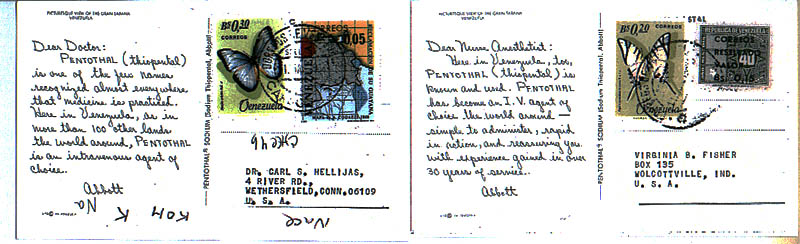 PICTURESQUE VIEW OF THE GRAN SABANA
VENEZUELA
Dear Doctor:
PENTOTHAL (thiopental)
is one of the few names
recognized almost everywhere
that medicine is practiced.
Here in Venezuela, as in
more than 100 other lands
the world around, PENTOTHAL
is an intravenous agent of
choice.
Abbott
PENTOTHAL® SODIUM (Sodium Thiopental, Abbott)
Bs 0,30
CORREOS
Venezuela
0,05
RECLAMACION DE SU GUAYANA
DR. CARL S. HELLIJAS,
4 RIVER RD.,
WETHERSFIELD,CONN.06109
U. S. A.
PICTURESQUE VIEW OF THE GRAN SABANA
VENEZUELA
Dear Nurse Anesthetist:
Here in Venezuela, too,
PENTOTHAL (thiopental) is
known and used. PENTOTHAL
has become an I.V. agent of
choice the world around —
simple to administer, rapid
in action, and reassuring you
with experience gained in over
30 years of service.
Abbott
PENTOTHAL® SODIUM (Sodium Thiopental, Abbott)
Bs 0,20
CORREOS
Venezuela
REPUBLICA DE VENEZUELA
RESELLADO
VALOR
Bs. 0,15
40
VIRGINIA B. FISHER
BOX 135
WOLCOTTVILLE, IND.
U. S. A.